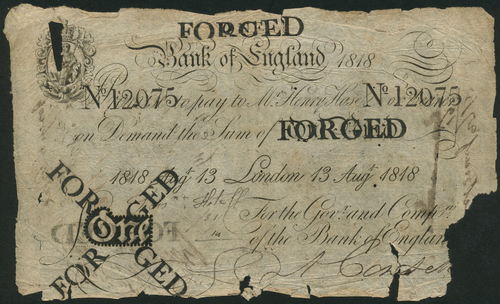 FORGED
Bank of England 1818
No 12075 to pay to Mr. Henry Hase No 12075
on Demand the Sum of FORGED
1818 Augt 13 London 13 Augt 1818
FORGED
FORGED
One
For the Govr. and Compa.
of the Bank of England